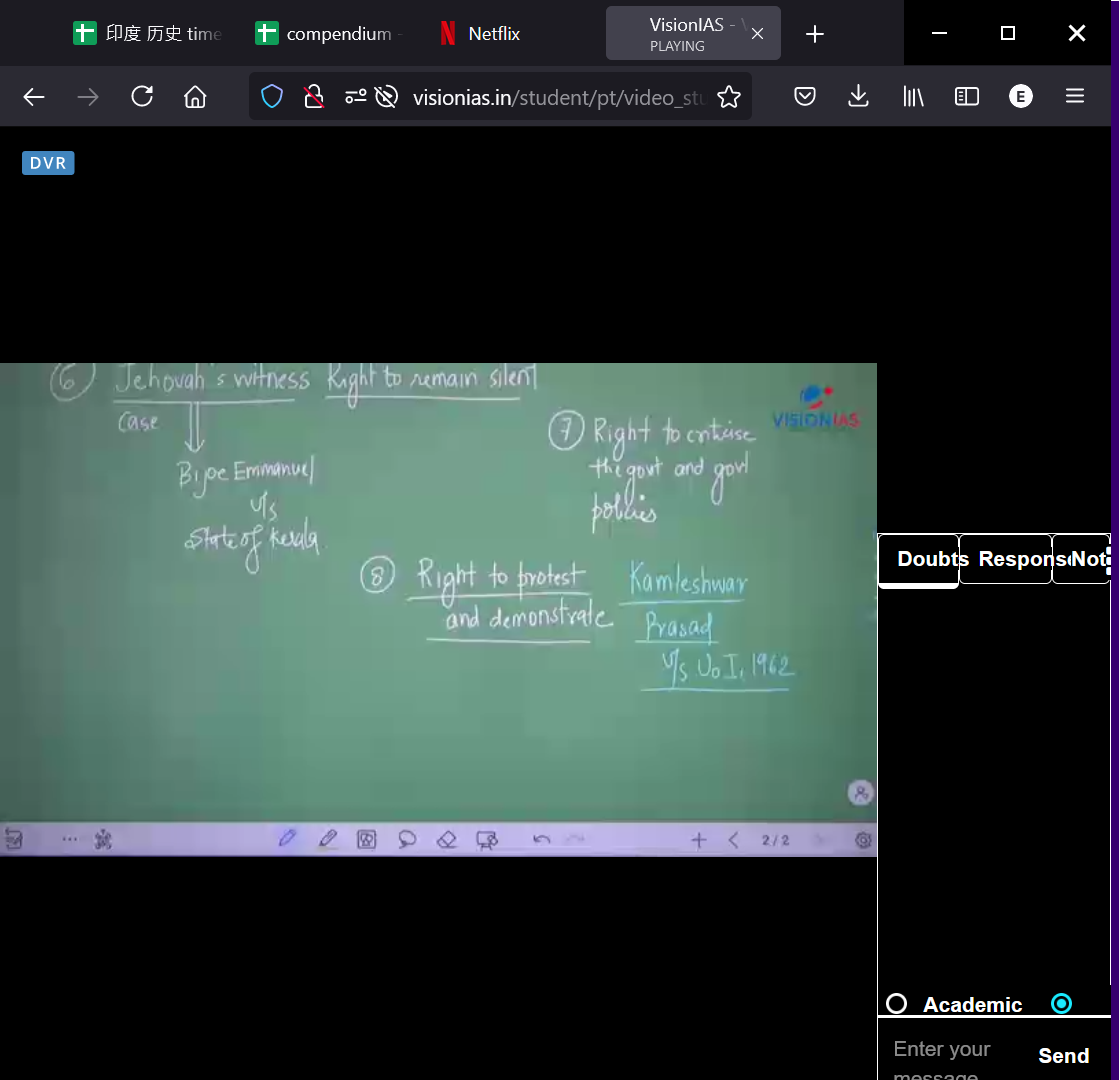 印度 历史 time
compendium -
Netflix
VisionIAS - V
PLAYING
visionias.in/student/pt/video_stu
E
DVR
6 Jehovah's witness Right to remain silent
case
Bijoe Emmanuel
v/s
State of Kerala
VISIONIAS
7 Right to criticise
the govt and govt
policies
8 Right to protest
and demonstrate
Kamleshwar
Prasad
v/s UoI, 1962
2/2
Doubts
Respons
Not
Academic
Enter your
message
Send